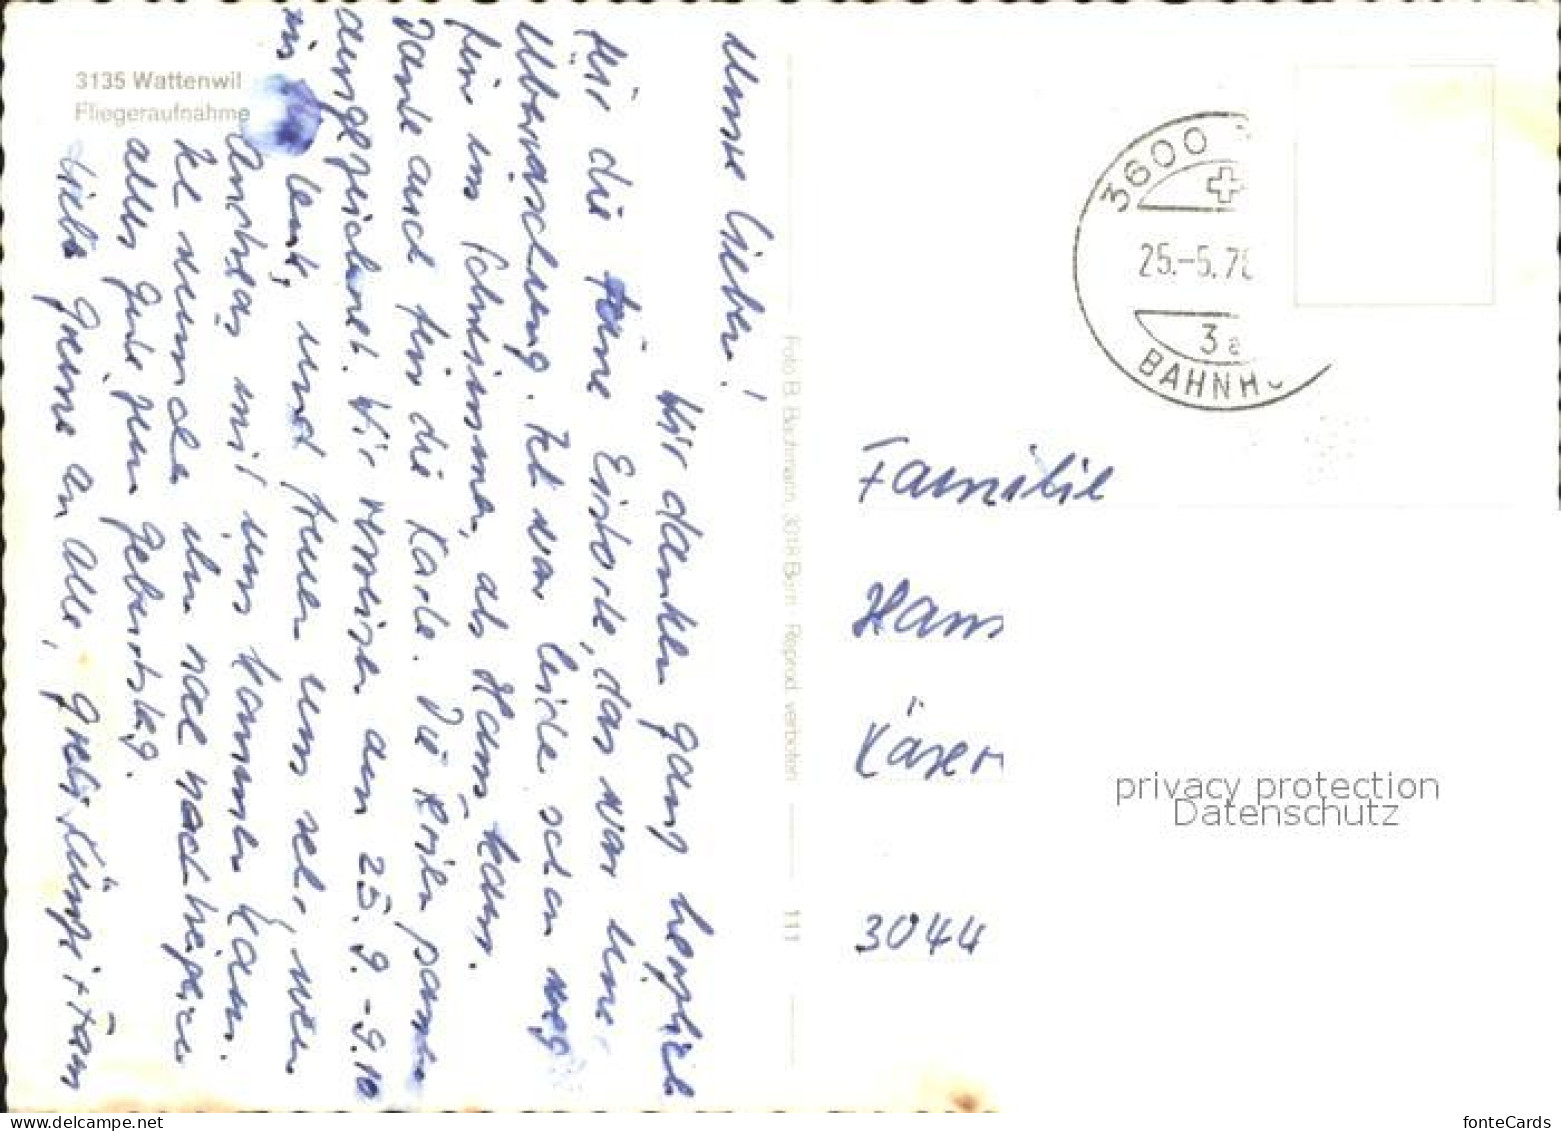 3135 Wattenwil
Fliegeraufnahme
Unsre Lieben!
Wir danken ganz herzlich
für die feine Eistorte, das war eine
Überraschung. Ich war leider schon weg
fein im Schwimmen, als Hans kam.
Danke auch für die Karte. Die Zeiten passen
ausgezeichnet. Wir verreisen am 25. 9. - 9. 10
und freuen uns sehr, wenn
Andreas mit uns kommen kann.
Ich wünsche ihm noch nachträglich
alles Gute zum Geburtstag.
Liebe Grüsse an alle, Greti Künzi + Fam
Foto B. Bachmann, 3018 Bern Reprod. verboten
111
3600
25.-5.78
3a
BAHNH
Familie
Hans
Käser
3044
privacy protection
Datenschutz
www.delcampe.net
fonteCards